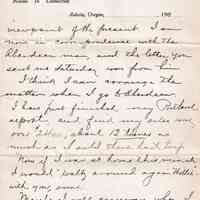 Phones in Connection
Astoria, Oregon, 190
viewpoint of the present. I am
now in correspondence with the
Aberdeen man, and the letter you
sent me Saturday was from him.
I think I can arrange the
matter when I go to Aberdeen.
I have just finished my Portland
report, and find my sales were
over about 12 times as
much as I sold there last trip.
Now if I was at home this minute
I would waltz around again
with you, some.